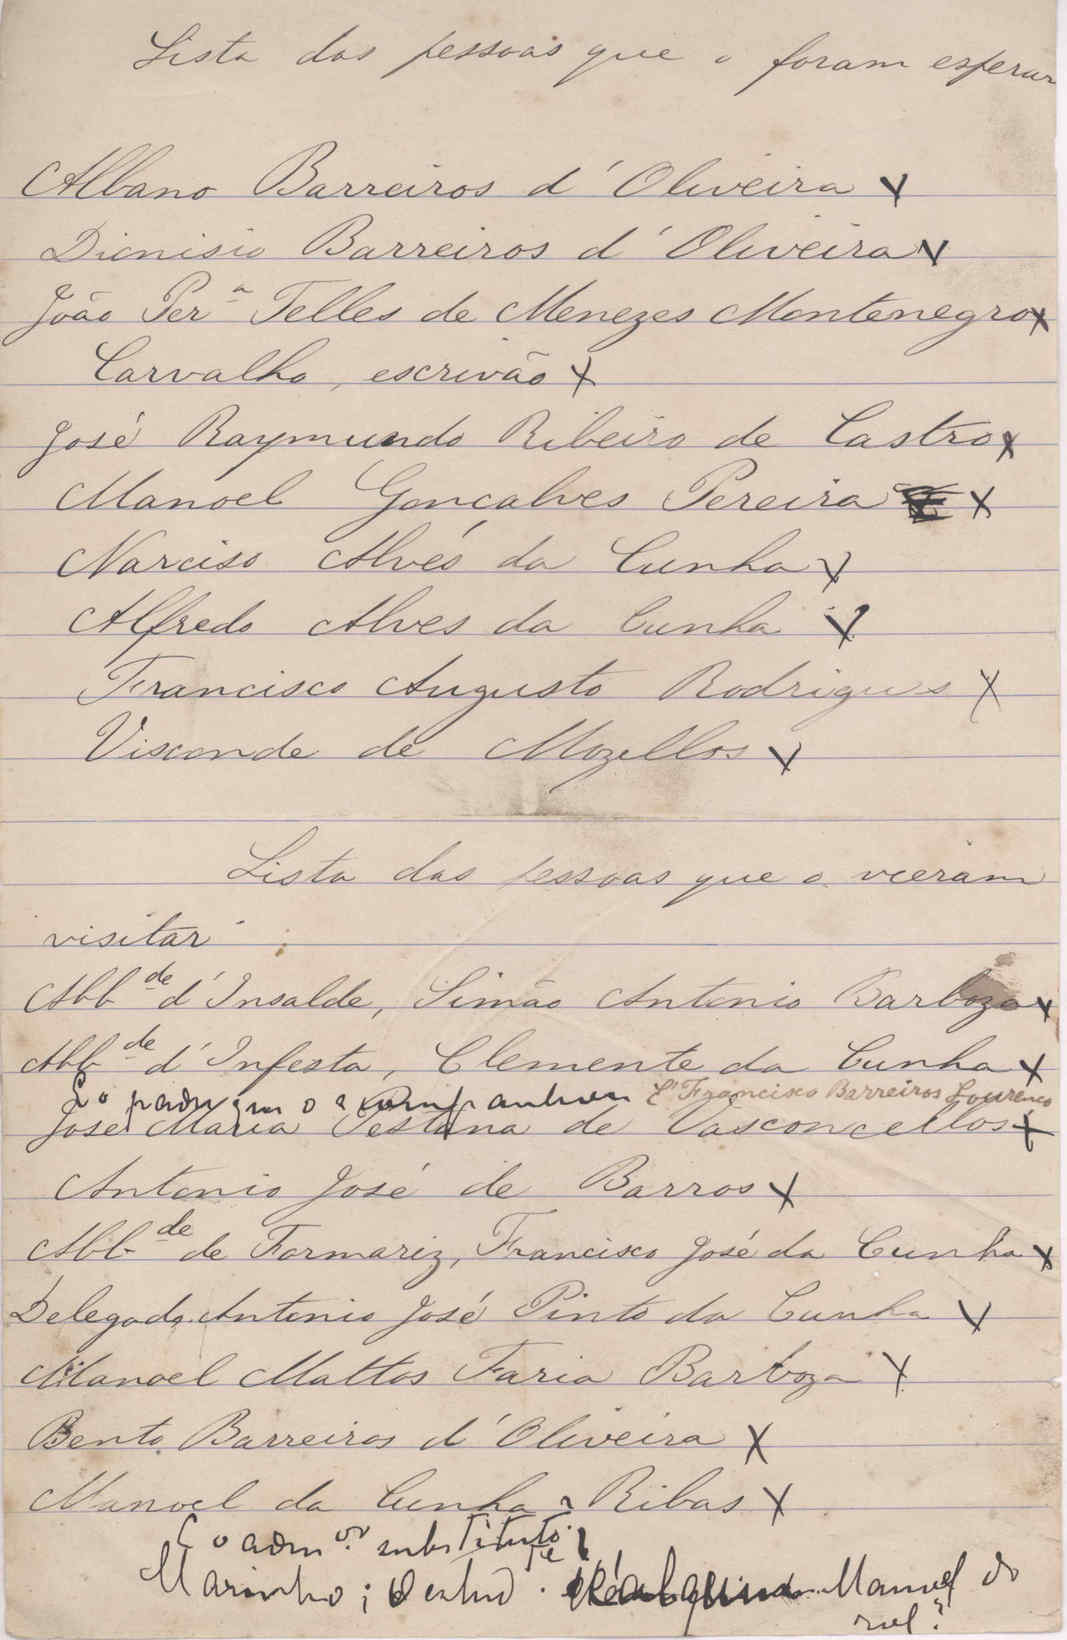 Lista das pessoas que o foram esperar
Albano Barreiros d'Oliveira
Dionisio Barreiros d'Oliveira
João Per.ª Telles de Menezes Montenegro
Carvalho, escrivão
José Raymundo Ribeiro de Castro
Manoel Gonçalves Pereira
Narciso Alves da Cunha
Alfredo Alves da Cunha
Francisco Augusto Rodrigues
Visconde de Mozellos
Lista das pessoas que o vieram
visitar
Abb.de d'Insalde, Simão Antonio Barboza
Abb.de d'Infesta, Clemente da Cunha
o acompanhou Francisco Barreiros Lourenço
José Maria Pestana de Vasconcellos
Antonio José de Barros
Abb.de de Formariz, Francisco José da Cunha
Delegado Antonio José Pinto da Cunha
Manoel Mattos Faria Barboza
Bento Barreiros d'Oliveira
Manoel da Cunha Ribas
o adm.or substituto
Marinho; Manuel do